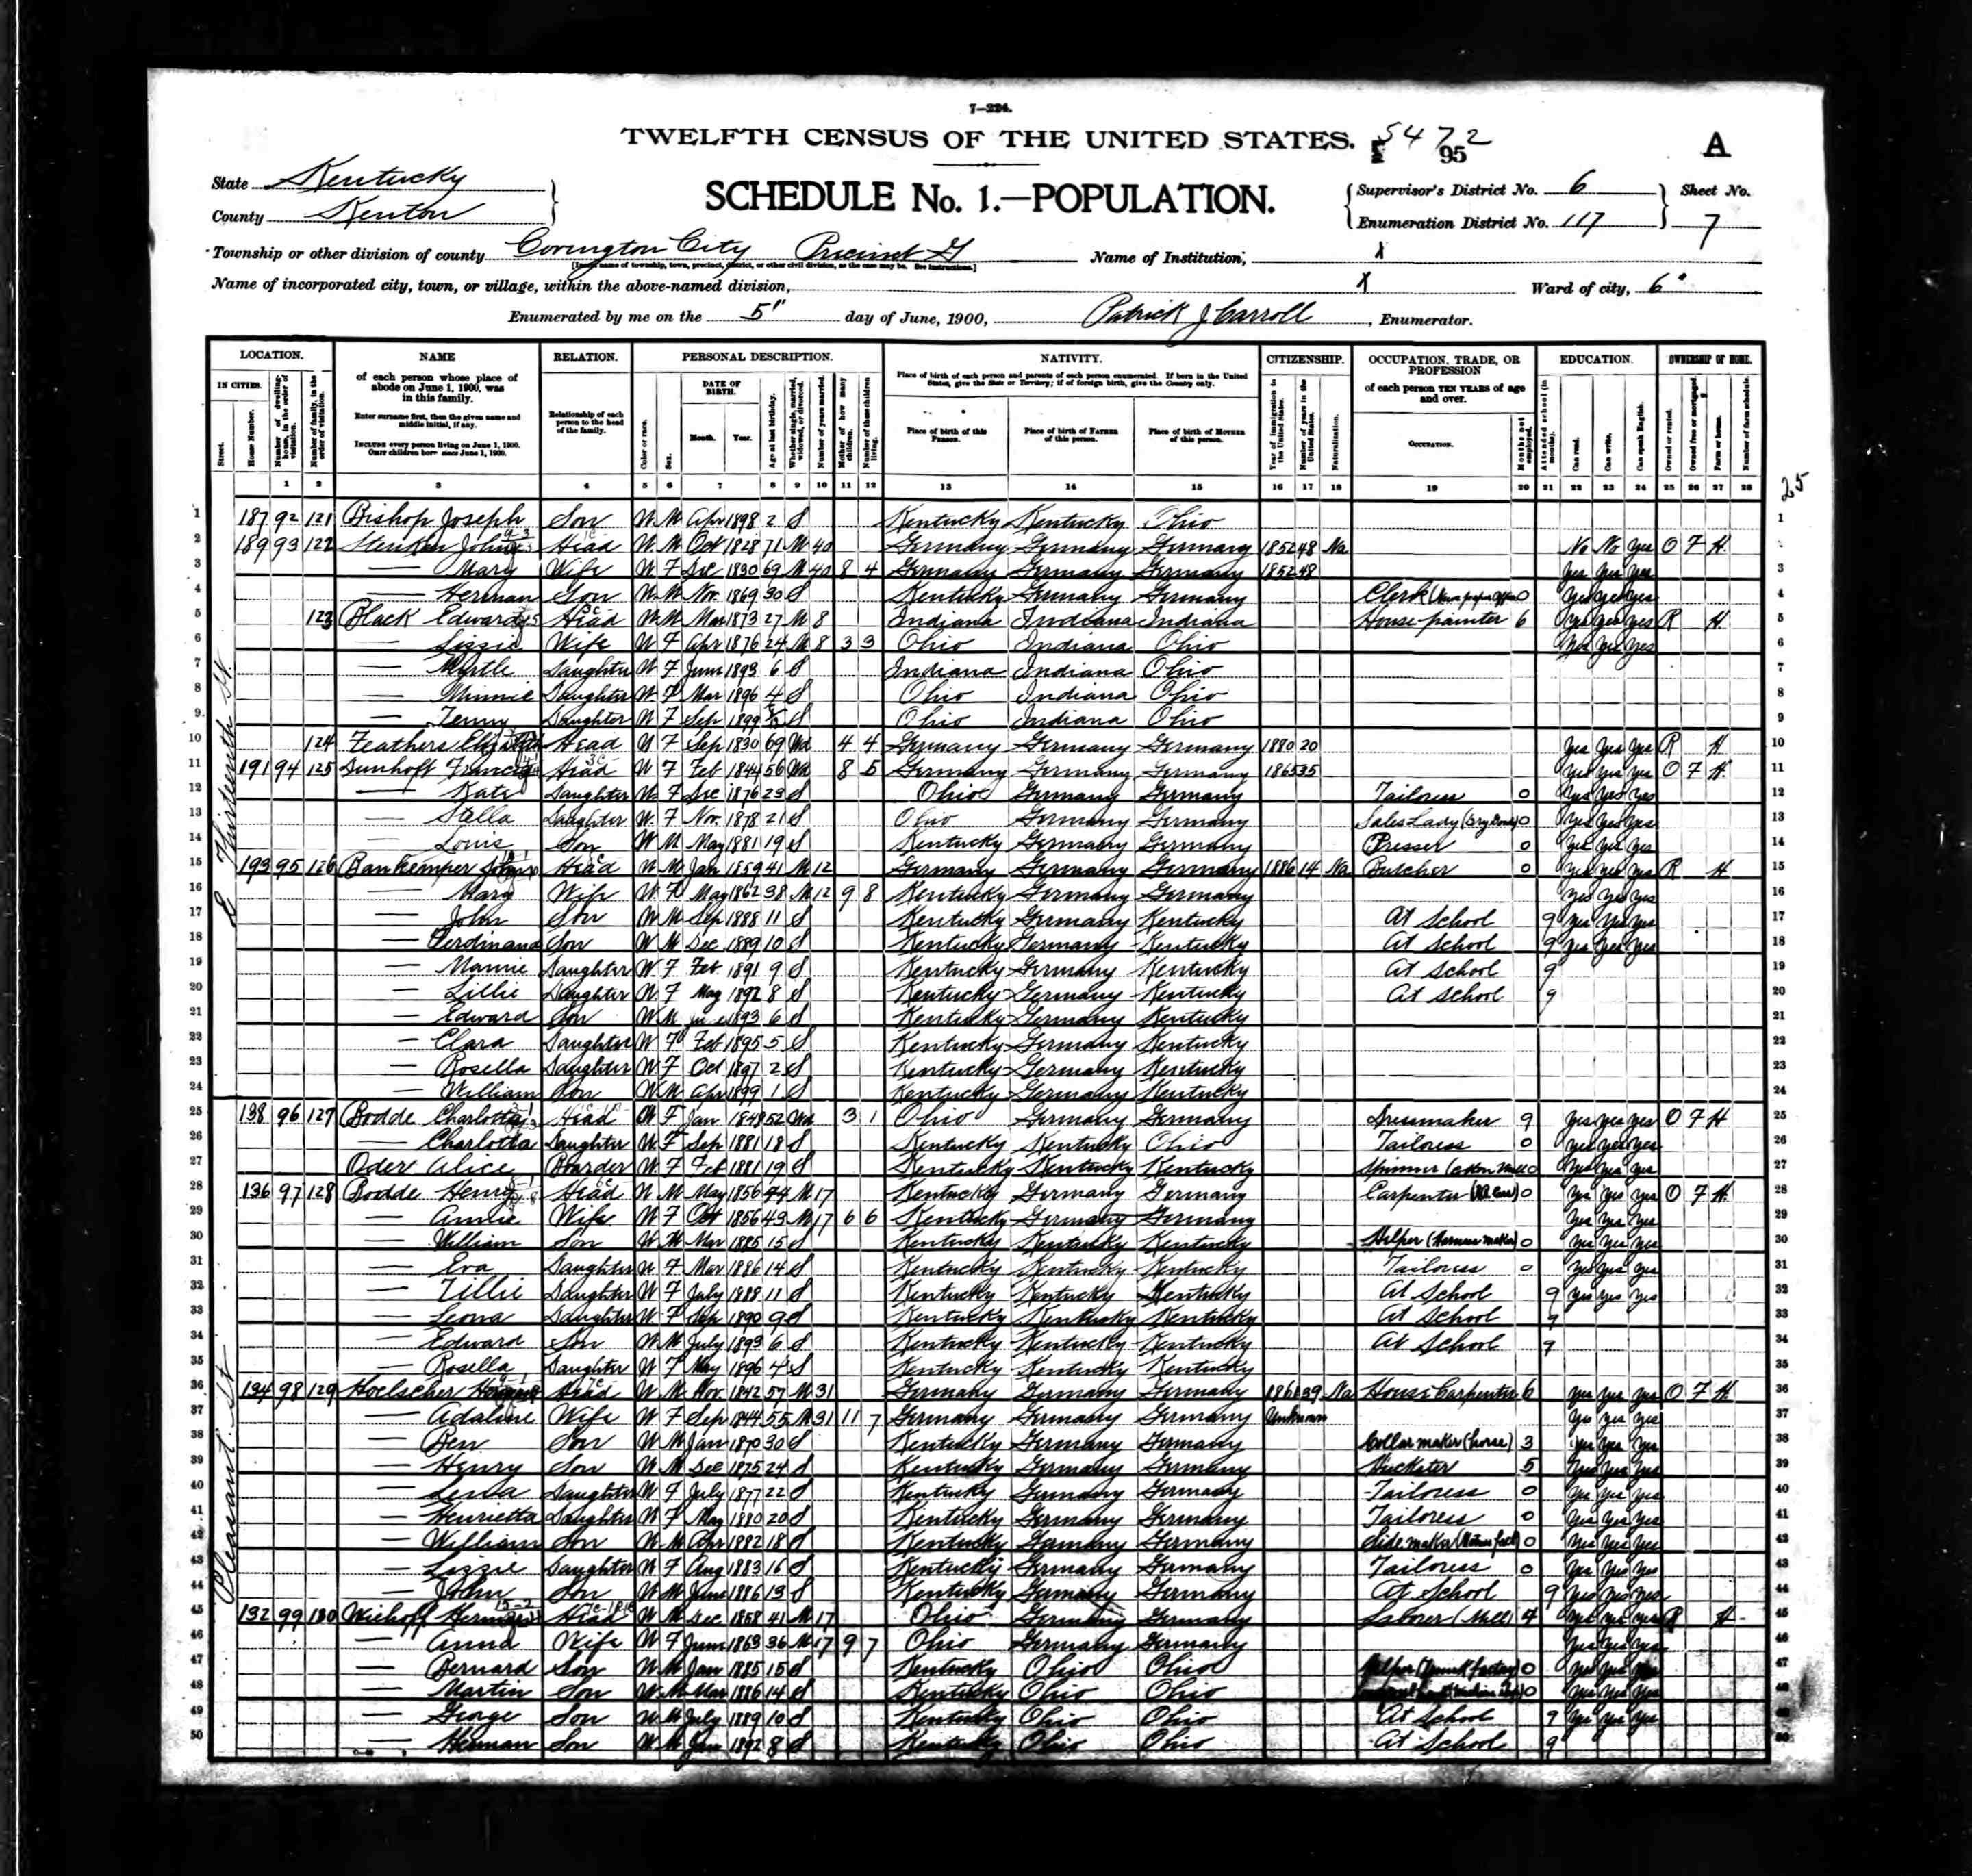 7—224.
TWELFTH CENSUS OF THE UNITED STATES.
5472
95
A
State Kentucky
County Kenton
SCHEDULE No. 1.—POPULATION.
Supervisor's District No. 6
Enumeration District No. 117
Sheet No.
7
Township or other division of county Covington City Precinct G
Name of Institution, X
Name of incorporated city, town, or village, within the above-named division, X
Ward of city, 6"
Enumerated by me on the 5" day of June, 1900, Patrick J Carroll, Enumerator.
LOCATION. NAME RELATION. PERSONAL DESCRIPTION. NATIVITY. CITIZENSHIP. OCCUPATION, TRADE, OR PROFESSION EDUCATION. OWNERSHIP OF HOME.
25
E Thirteenth St.
Pleasant St
1 187 92 121 Bishop Joseph Son W M Apr 1898 2 S Kentucky Kentucky Ohio 1
2 189 93 122 John Head W M Oct 1828 71 M 40 Germany Germany Germany 1852 48 Na No No Yes O F H
3 — Mary Wife W F Dec 1830 69 M 40 8 4 Germany Germany Germany 1852 48 Yes Yes Yes 3
4 — Herman Son W M Nov 1869 30 S Kentucky Germany Germany Clerk 0 Yes Yes Yes 4
5 123 Black Edward Head W M Mar 1873 27 M 8 Indiana Indiana Indiana House painter 6 Yes Yes Yes R H 5
6 — Lizzie Wife W F Apr 1876 24 M 8 3 3 Ohio Indiana Ohio Yes Yes Yes 6
7 — Myrtle Daughter W F June 1893 6 S Indiana Indiana Ohio 7
8 — Minnie Daughter W F Mar 1896 4 S Ohio Indiana Ohio 8
9 — Jenny Daughter W F Sep 1899 S Ohio Indiana Ohio 9
10 124 Feathers Head W F Sep 1830 69 Wd 4 4 Germany Germany Germany 1880 20 Yes Yes Yes R H 10
11 191 94 125 Dunhoft Head W F Feb 1844 56 Wd 8 5 Germany Germany Germany 1865 35 Yes Yes Yes O F H 11
12 — Kate Daughter W F Dec 1876 23 S Ohio Germany Germany Tailoress 0 Yes Yes Yes 12
13 — Stella Daughter W F Nov 1878 21 S Ohio Germany Germany Sales Lady (Dry Goods) 0 Yes Yes Yes 13
14 — Louis Son W M May 1881 19 S Kentucky Germany Germany Presser 0 Yes Yes Yes 14
15 193 95 126 Bankemper Head W M Jan 1859 41 M 12 Germany Germany Germany 1886 14 Na Butcher 0 Yes Yes Yes R H 15
16 — Mary Wife W F May 1862 38 M 12 9 8 Kentucky Germany Germany Yes Yes Yes 16
17 — John Son W M Sep 1888 11 S Kentucky Germany Kentucky At School 9 Yes Yes Yes 17
18 — Ferdinand Son W M Dec 1889 10 S Kentucky Germany Kentucky At School 9 Yes Yes Yes 18
19 — Mamie Daughter W F Feb 1891 9 S Kentucky Germany Kentucky At School 9 19
20 — Lillie Daughter W F May 1892 8 S Kentucky Germany Kentucky At School 9 20
21 — Edward Son W M June 1893 6 S Kentucky Germany Kentucky 21
22 — Clara Daughter W F Feb 1895 5 S Kentucky Germany Kentucky 22
23 — Rosella Daughter W F Oct 1897 2 S Kentucky Germany Kentucky 23
24 — William Son W M Apr 1899 1 S Kentucky Germany Kentucky 24
25 138 96 127 Bodde Charlotta Head W F Jan 1848 52 Wd 3 1 Ohio Germany Germany Dressmaker 9 Yes Yes Yes O F H 25
26 — Charlotta Daughter W F Sep 1881 18 S Kentucky Kentucky Ohio Tailoress 0 Yes Yes Yes 26
27 Oder Alice Boarder W F Feb 1881 19 S Kentucky Kentucky Kentucky Spinner (Cotton Mill) 0 Yes Yes Yes 27
28 136 97 128 Bodde Henry Head W M May 1856 44 M 17 Kentucky Germany Germany Carpenter (RR Car) 0 Yes Yes Yes O F H 28
29 — Annie Wife W F Oct 1856 43 M 17 6 6 Kentucky Germany Germany Yes Yes Yes 29
30 — William Son W M Mar 1885 15 S Kentucky Kentucky Kentucky Helper (Harness maker) 0 Yes Yes Yes 30
31 — Eva Daughter W F Mar 1886 14 S Kentucky Kentucky Kentucky Tailoress 0 Yes Yes Yes 31
32 — Tillie Daughter W F July 1888 11 S Kentucky Kentucky Kentucky At School 9 Yes Yes Yes 32
33 — Leona Daughter W F Sep 1890 9 S Kentucky Kentucky Kentucky At School 9 33
34 — Edward Son W M July 1893 6 S Kentucky Kentucky Kentucky At School 9 34
35 — Rosella Daughter W F May 1896 4 S Kentucky Kentucky Kentucky 35
36 134 98 129 Hoelscher Head W M Nov 1842 57 M 31 Germany Germany Germany 1861 39 Na House Carpenter 6 Yes Yes Yes O F H 36
37 — Adaline Wife W F Sep 1844 55 M 31 11 7 Germany Germany Germany Unknown Yes Yes Yes 37
38 — Ben Son W M Jan 1870 30 S Kentucky Germany Germany Collar maker (horse) 3 Yes Yes Yes 38
39 — Henry Son W M Dec 1875 24 S Kentucky Germany Germany Huckster 5 Yes Yes Yes 39
40 — Lena Daughter W F July 1877 22 S Kentucky Germany Germany Tailoress 0 Yes Yes Yes 40
41 — Henrietta Daughter W F May 1880 20 S Kentucky Germany Germany Tailoress 0 Yes Yes Yes 41
42 — William Son W M Apr 1882 18 S Kentucky Germany Germany 0 Yes Yes Yes 42
43 — Lizzie Daughter W F Aug 1883 16 S Kentucky Germany Germany Tailoress 0 Yes Yes Yes 43
44 — John Son W M June 1886 13 S Kentucky Germany Germany At School 9 Yes Yes Yes 44
45 132 99 130 Wiehoff Herman Head W M Dec 1858 41 M 17 Ohio Germany Germany Laborer (Mill) 4 Yes Yes Yes R H 45
46 — Anna Wife W F June 1863 36 M 17 9 7 Ohio Germany Germany Yes Yes Yes 46
47 — Bernard Son W M Jan 1885 15 S Kentucky Ohio Ohio Helper 0 Yes Yes Yes 47
48 — Martin Son W M Mar 1886 14 S Kentucky Ohio Ohio 0 Yes Yes Yes 48
49 — George Son W M July 1889 10 S Kentucky Ohio Ohio At School 9 Yes Yes Yes 49
50 — Herman Son W M Jan 1892 8 S Kentucky Ohio Ohio At School 9 50